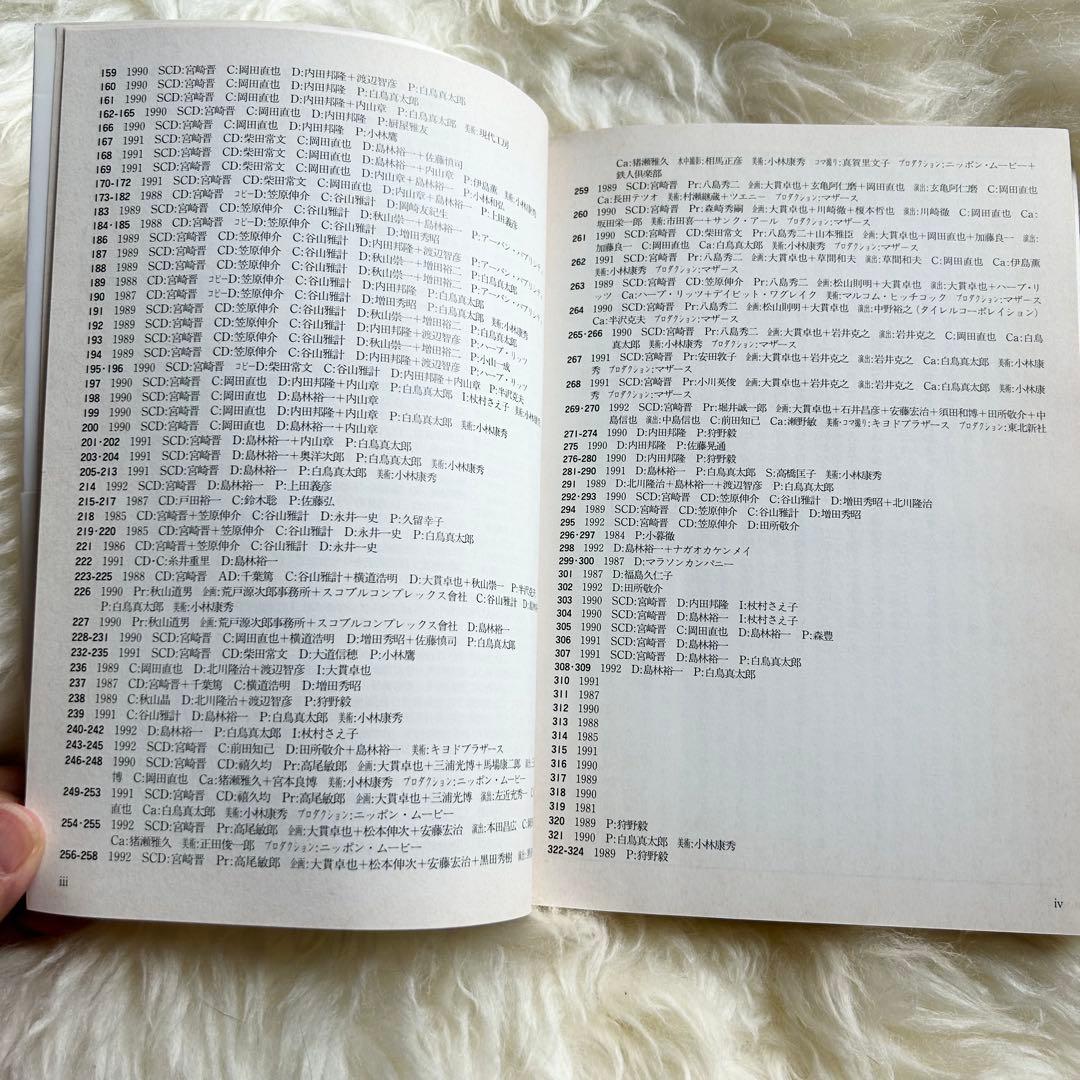 159 1990 SCD:宮崎晋 C:岡田直也 D:内田邦隆+渡辺智彦 P:白鳥真太郎
160 1990 SCD:宮崎晋 C:岡田直也 D:内田邦隆 P:白鳥真太郎
161 1990 SCD:宮崎晋 C:岡田直也 D:内田邦隆+内山章 P:白鳥真太郎 美術:現代工房
162-165 1990 SCD:宮崎晋 C:岡田直也 D:内田邦隆 P:厨屋雅友
166 1990 SCD:宮崎晋 C:岡田直也 D:内田邦隆 P:小林鷹
167 1991 SCD:宮崎晋 CD:柴田常文 C:岡田直也 D:島林裕一+佐藤慎司
168 1991 SCD:宮崎晋 CD:柴田常文 C:岡田直也 D:島林裕一+内山章 P:伊島薫 美術:小林康秀
169 1991 SCD:宮崎晋 CD:柴田常文 C:岡田直也
170-172 1991 SCD:宮崎晋 CD:柴田常文 C:岡田直也
173-182 1988 SCD:宮崎晋 CD:笠原伸介 C:谷山雅計
183 1989 SCD:宮崎晋 CD:笠原伸介 C:谷山雅計
184·185 1988 SCD:宮崎晋 コピーD:笠原伸介 C:谷山雅計
186 1989 SCD:宮崎晋 CD:笠原伸介 C:谷山雅計
187 1989 SCD:宮崎晋 CD:笠原伸介 C:谷山雅計
188 1989 SCD:宮崎晋 CD:笠原伸介 C:谷山雅計
189 1988 SCD:宮崎晋 コピーD:笠原伸介 C:谷山雅計
190 1987 SCD:宮崎晋 CD:笠原伸介 C:谷山雅計
191 1989 SCD:宮崎晋 CD:笠原伸介 C:谷山雅計
192 1989 SCD:宮崎晋 CD:笠原伸介 C:谷山雅計
193 1989 SCD:宮崎晋 CD:笠原伸介 C:谷山雅計
194 1989 SCD:宮崎晋 CD:笠原伸介 C:谷山雅計
195·196 1990 SCD:宮崎晋 コピーD:柴田常文 C:谷山雅計
197 1990 SCD:宮崎晋 C:岡田直也 D:内田邦隆+内山章
198 1990 SCD:宮崎晋 C:岡田直也 D:島林裕一+内山章
199 1990 SCD:宮崎晋 C:岡田直也 D:内田邦隆+内山章
200 1990 SCD:宮崎晋 C:岡田直也 D:島林裕一+内山章
201·202 1991 SCD:宮崎晋 D:島林裕一+内山章 P:白鳥真太郎
203·204 1991 SCD:宮崎晋 D:島林裕一+奥洋次郎 P:白鳥真太郎
205-213 1991 SCD:宮崎晋 D:島林裕一 P:白鳥真太郎 美術:小林康秀
214 1992 SCD:宮崎晋 D:島林裕一 P:上田義彦
215-217 1987 CD:戸田裕一 C:鈴木聡 P:佐藤弘
218 1985 CD:宮崎晋+笠原伸介 C:谷山雅計 D:永井一史 P:久留幸子
219·220 1985 CD:宮崎晋+笠原伸介 C:谷山雅計 D:永井一史 P:白鳥真太郎
221 1986 CD:宮崎晋+笠原伸介 C:谷山雅計 D:永井一史
222 1991 CD·C:糸井重里 D:島林裕一
223-225 1988 CD:宮崎晋 AD:千葉篤 C:谷山雅計+横道浩明 D:大貫卓也+秋山崇一
226 1990 Pr:秋山道男 企画:荒戸源次郎事務所+スコブルコンプレックス會社 C:谷山雅計
P:白鳥真太郎 美術:小林康秀
227 1990 Pr:秋山道男 企画:荒戸源次郎事務所+スコブルコンプレックス會社 D:島林裕一
228-231 1990 SCD:宮崎晋 C:岡田直也+横道浩明 D:増田秀昭+佐藤慎司 P:白鳥真太郎
232-235 1991 SCD:宮崎晋 CD:柴田常文 D:大道信穂 P:小林鷹
236 1989 C:岡田直也 D:北川隆治+渡辺智彦 I:大貫卓也
237 1987 CD:宮崎晋+千葉篤 C:横道浩明 D:増田秀昭
238 1989 C:秋山晶 D:北川隆治+渡辺智彦 P:狩野毅
239 1991 C:谷山雅計 D:島林裕一 P:白鳥真太郎 美術:小林康秀
240-242 1992 D:島林裕一 P:白鳥真太郎 I:杖村さえ子
243-245 1992 SCD:宮崎晋 C:前田知己 D:田所敬介+島林裕一 美術:キヨドブラザース
246-248 1990 SCD:宮崎晋 CD:禧久均 Pr:高尾敏郎 企画:大貫卓也+三浦光博+馬場康二郎
博 C:岡田直也 Ca:猪瀬雅久+宮本良博 美術:小林康秀 プロダクション:ニッポン・ムービー
249-253 1991 SCD:宮崎晋 CD:禧久均 Pr:高尾敏郎 企画:大貫卓也+三浦光博 演出:左近光秀
直也 Ca:白鳥真太郎 美術:小林康秀 プロダクション:ニッポン・ムービー
254·255 1992 SCD:宮崎晋 Pr:高尾敏郎 企画:大貫卓也+松本伸次+安藤宏治 演出:本田昌広
Ca:猪瀬雅久 美術:正田俊一郎 プロダクション:ニッポン・ムービー
256-258 1992 SCD:宮崎晋 Pr:高尾敏郎 企画:大貫卓也+松本伸次+安藤宏治+黒田秀樹
iii
Ca:猪瀬雅久 水中撮影:相馬正彦 美術:小林康秀 コマ撮り:真賀里文子 プロダクション:ニッポン・ムービー+
鉄人倶楽部
259 1989 SCD:宮崎晋 Pr:八島秀二 企画:大貫卓也+玄亀阿仁磨+岡田直也 演出:玄亀阿仁磨 C:岡田直也
Ca:長田テツオ 美術:村瀬継蔵+ツエニー プロダクション:マザース
260 1990 SCD:宮崎晋 Pr:森崎秀嗣 企画:大貫卓也+川崎徹+榎本哲也 演出:川崎徹 C:岡田直也 Ca:
坂田栄一郎 美術:市田喜一+サンク・アール プロダクション:マザース
261 1990 SCD:宮崎晋 CD:柴田常文 Pr:八島秀二+山本雅臣 企画:大貫卓也+岡田直也+加藤良一 演出:
加藤良一 C:岡田直也 Ca:白鳥真太郎 美術:小林康秀 プロダクション:マザース
262 1991 SCD:宮崎晋 Pr:八島秀二 企画:大貫卓也+草間和夫 演出:草間和夫 C:岡田直也 Ca:伊島薫
美術:小林康秀 プロダクション:マザース
263 1989 SCD:宮崎晋 CD:笠原伸介 Pr:八島秀二 企画:松山則明+大貫卓也 演出:大貫卓也+ハーブ・リ
ッツ Ca:ハーブ・リッツ+デイビット・ワグレイク 美術:マルコム・ヒッチコック プロダクション:マザース
264 1990 SCD:宮崎晋 Pr:八島秀二 企画:松山則明+大貫卓也 演出:中野裕之(タイレルコーポレイション)
Ca:半沢克夫 プロダクション:マザース
265·266 1990 SCD:宮崎晋 Pr:八島秀二 企画:大貫卓也+岩井克之 演出:岩井克之 C:岡田直也 Ca:白鳥
真太郎 美術:小林康秀 プロダクション:マザース
267 1991 SCD:宮崎晋 Pr:安田敦子 企画:大貫卓也+岩井克之 演出:岩井克之 Ca:白鳥真太郎 美術:小林康
秀 プロダクション:マザース
268 1991 SCD:宮崎晋 Pr:小川英俊 企画:大貫卓也+岩井克之 演出:岩井克之 Ca:白鳥真太郎 美術:小林康
秀 プロダクション:マザース
269·270 1992 SCD:宮崎晋 Pr:堀井誠一郎 企画:大貫卓也+石井昌彦+安藤宏治+須田和博+田所敬介+中
島信也 演出:中島信也 C:前田知己 Ca:瀬野敏 美術·コマ撮り:キヨドブラザース プロダクション:東北新社
271-274 1990 D:内田邦隆 P:狩野毅
275 1990 D:内田邦隆 P:佐藤晃通
276-280 1990 D:内田邦隆 P:狩野毅
281-290 1991 D:島林裕一 P:白鳥真太郎 S:高橋匡子 美術:小林康秀
291 1989 D:北川隆治+島林裕一+渡辺智彦 P:白鳥真太郎
292·293 1990 SCD:宮崎晋 CD:笠原伸介 C:谷山雅計 D:増田秀昭+北川隆治
294 1989 SCD:宮崎晋 CD:笠原伸介 C:谷山雅計 D:増田秀昭
295 1992 SCD:宮崎晋 CD:笠原伸介 D:田所敬介
296·297 1984 P:小暮徹
298 1992 D:島林裕一+ナガオカケンメイ
299·300 1987 D:マラソンカンパニー
301 1987 D:福島久仁子
302 1992 D:田所敬介
303 1990 SCD:宮崎晋 D:内田邦隆 I:杖村さえ子
304 1990 SCD:宮崎晋 D:島林裕一 I:杖村さえ子
305 1990 SCD:宮崎晋 C:岡田直也 D:島林裕一 P:森豊
306 1991 SCD:宮崎晋 D:島林裕一
307 1991 SCD:宮崎晋 D:島林裕一 P:白鳥真太郎
308·309 1992 D:島林裕一 P:白鳥真太郎
310 1991
311 1987
312 1990
313 1988
314 1985
315 1991
316 1990
317 1989
318 1990
319 1981
320 1989 P:狩野毅
321 1990 P:白鳥真太郎 美術:小林康秀
322-324 1989 P:狩野毅
iv